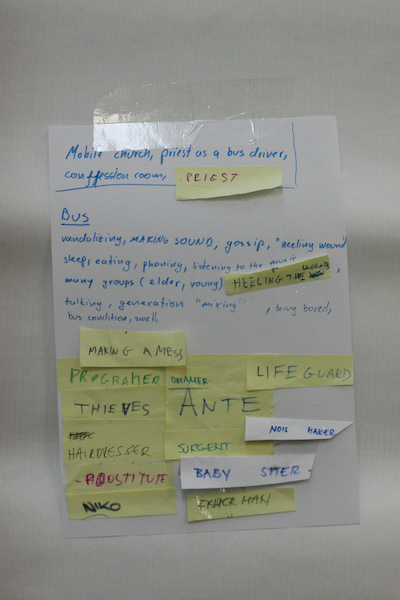 Mobile church, priest as a bus driver,
confession room, PRIEST
Bus
vandalising, MAKING SOUND, gossip, "heeling wound"
sleep, eating, phoning, listening to the music
many groups (elder, young) HEELING THE WOUNDS,
talking, generation "mixing", being bored,
bus condition, smell,
MAKING A MESS
PROGRAMER DREAMER LIFE GUARD
THIEVES ANTE
NOIS MAKER
HAIRDRESSER SURGENT
PROSTITUTE BABY SITER
NIKO